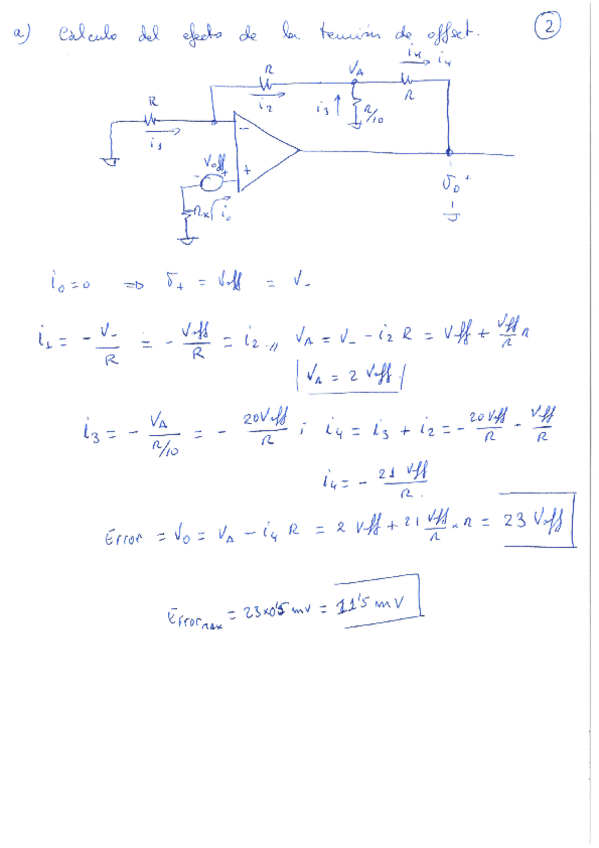 a) Cálculo del efecto de la tensión de offset. 2
i4
R VA → i4
R i2 i3 ↑ R/10 R
i1
Voff
- +
Rx i0
- +
vo +
i0=0 ⇒ v+ = Voff = V-
i1 = - V-/R = - Voff/R = i2 ,, VA = V- - i2 R = Voff + Voff/R R
VA = 2 Voff
i3 = - VA/(R/10) = - 20Voff/R ; i4 = i3 + i2 = - 20Voff/R - Voff/R
i4 = - 21 Voff/R .
Error = Vo = VA - i4 R = 2 Voff + 21 Voff/R × R = 23 Voff
Error max = 23x0'5 mV = 11'5 mV